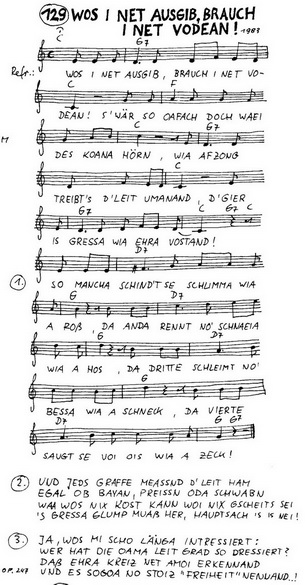 129 WOS I NET AUSGIB, BRAUCH
I NET VODEAN! 1983
C G7
Refr.: WOS I NET AUSGIB, BRAUCH I NET VO-
C F
DEAN! S'WÄR SO OAFACH DOCH WAEI
M C G7
DES KOANA HÖRN, WIA AFZONG
C
TREIBT'S D'LEIT UMANAND, D'GIER
G7 C G7 C
IS GRESSA WIA EHRA VOSTAND!
D7
1. SO MANCHA SCHIND'T SE SCHLIMMA WIA
G D7
A ROß, DA ANDA RENNT NO' SCHNAEIA
G D7
WIA A HOS, DA DRITTE SCHLEIMT NO'
G
BESSA WIA A SCHNECK, DA VIERTE
D7 G G7
SAUGT SE VOI OIS WIA A ZECK!
2. UUD JEDS GRAFFE MEASSND D'LEIT HAM
EGAL OB BAYAN, PREISSN ODA SCHWABN
WOS NIX KOST KANN WOI NIX GSCHEITS SEI
'S GRESSA GLUMP MUAß HER, HAUPTSACH IS IS NEI!
3. JA, WOS MI SCHO LÄNGA INTRESSIERT:
WER HAT DIE OAMA LEIT GRAD SO DRESSIERT?
DAß EHRA KREIZ NET AMOI ERKENNAND
OP. 247 UND ES SOGOA NO STOIZ "FREIHEIT" NENNAND..!